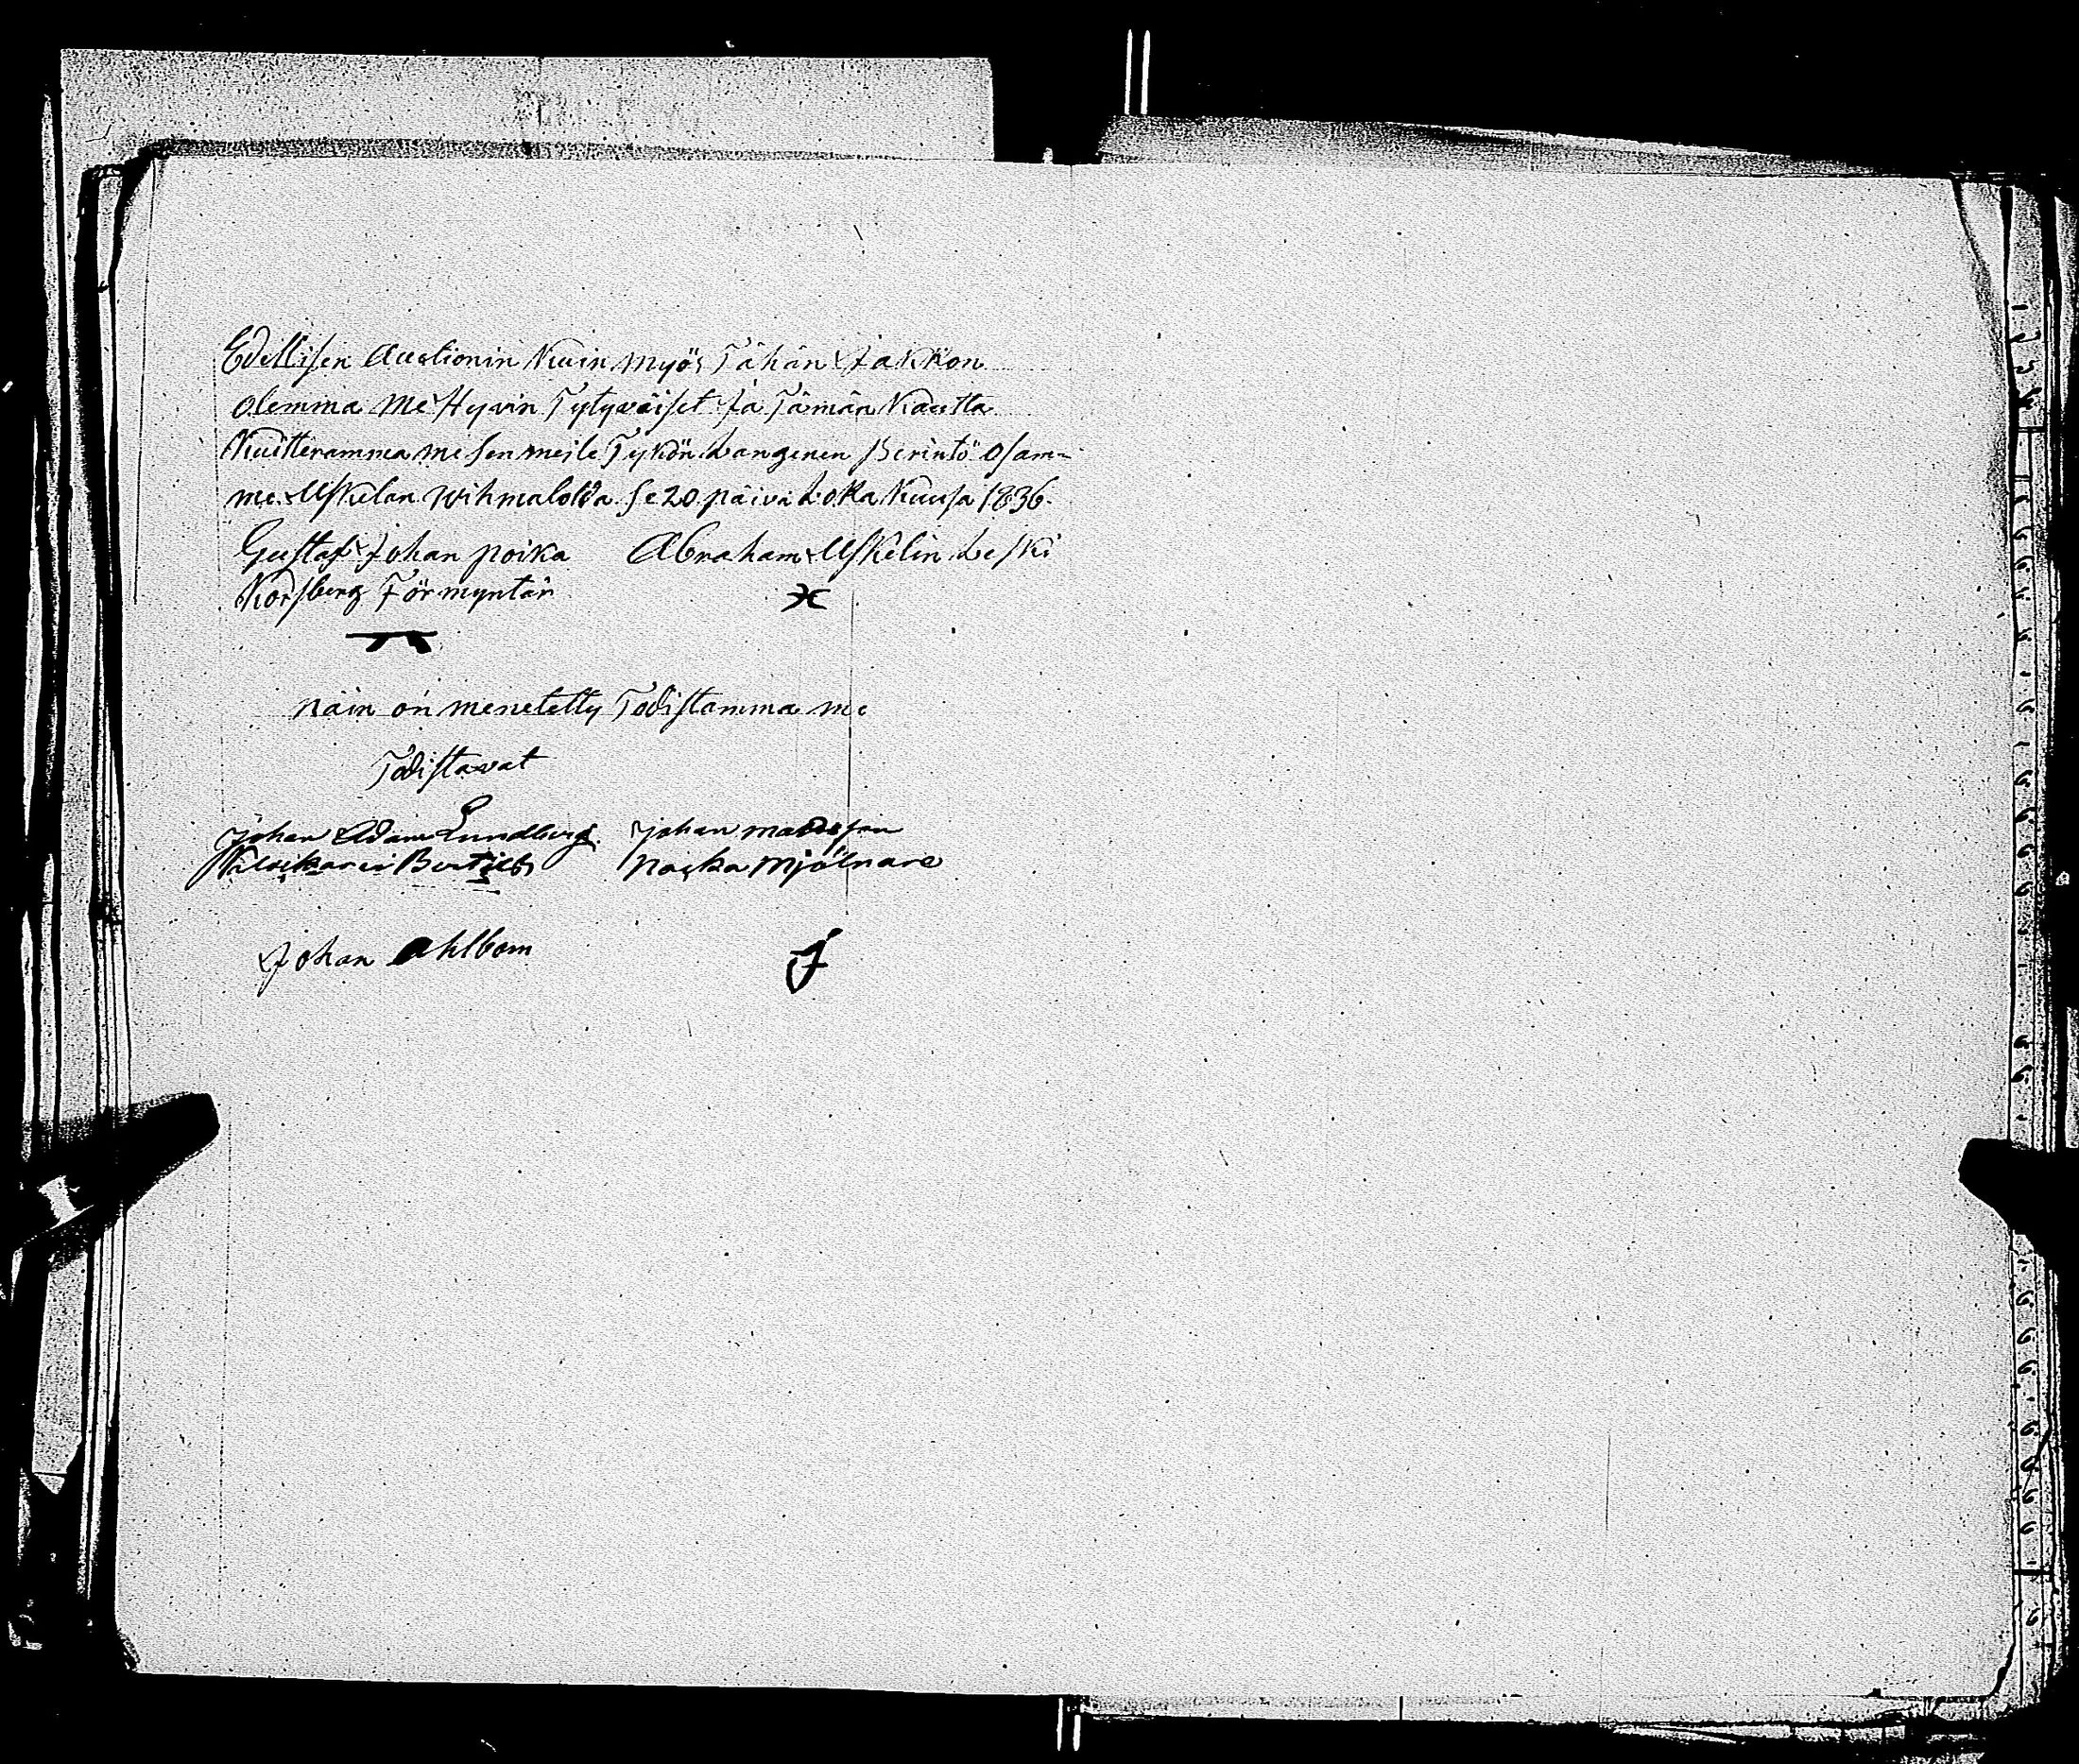 Edellisen Auctionin Kuin myös Tähän Jakkon
olemma me Hyvin Tytyväiset Ja Tämän Kautta
Kuitteramma me sen meile Tykön Langenen Perintö osam-
me. Uskelan Wihmalosta se 20 päivä Loka Kuusa 1836.
Gustaf Johan poika Abraham Uskelin Leski
Korsberg Förmyntär
näin on menetetty Todistamma me
Todistavat
Johan Adam Lundberg Johan mattsson
Bertils Mjölnare
Johan Ahlbom